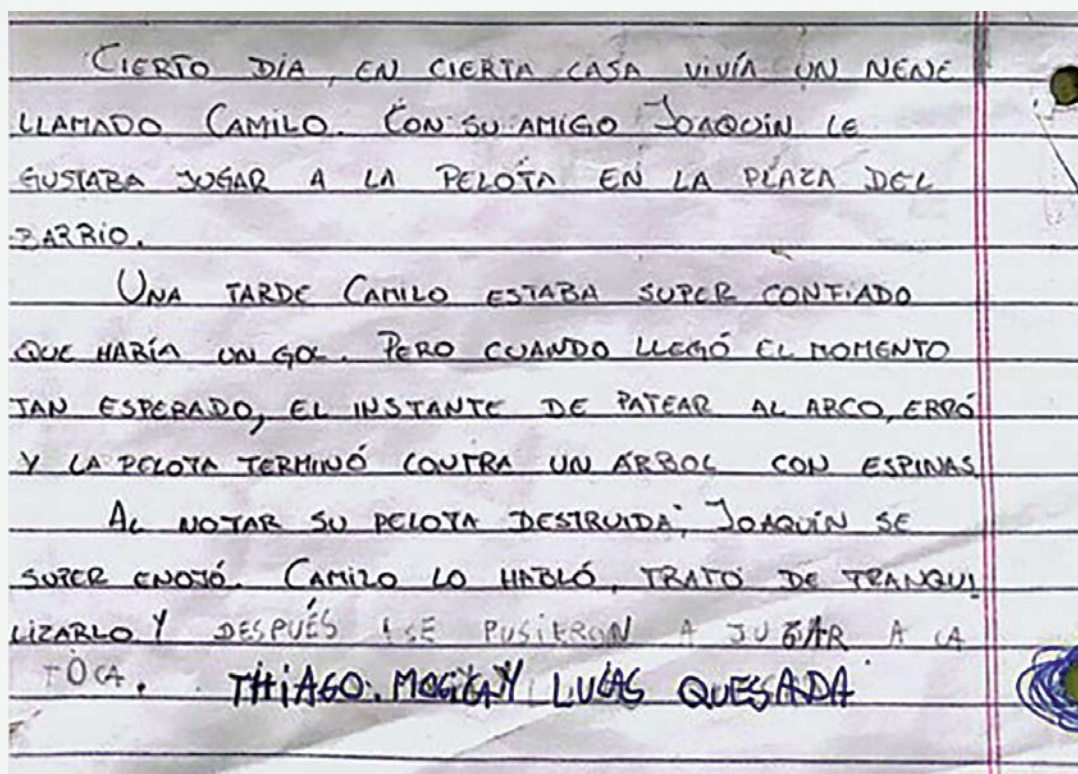 CIERTO DÍA, EN CIERTA CASA VIVÍA UN NENE
LLAMADO CAMILO. CON SU AMIGO JOAQUÍN LE
GUSTABA JUGAR A LA PELOTA EN LA PLAZA DEL
BARRIO.
UNA TARDE CAMILO ESTABA SUPER CONFIADO
QUE HARÍA UN GOL. PERO CUANDO LLEGÓ EL MOMENTO
TAN ESPERADO, EL INSTANTE DE PATEAR AL ARCO, ERRÓ
Y LA PELOTA TERMINÓ CONTRA UN ÁRBOL CON ESPINAS
AL NOTAR SU PELOTA DESTRUIDA, JOAQUÍN SE
SUPER ENOJÓ. CAMILO LO HABLÓ, TRATÓ DE TRANQUI
LIZARLO Y DESPUÉS SE PUSIERON A JUGAR A LA
TOCA. THIAGO. Y LUCAS QUESADA